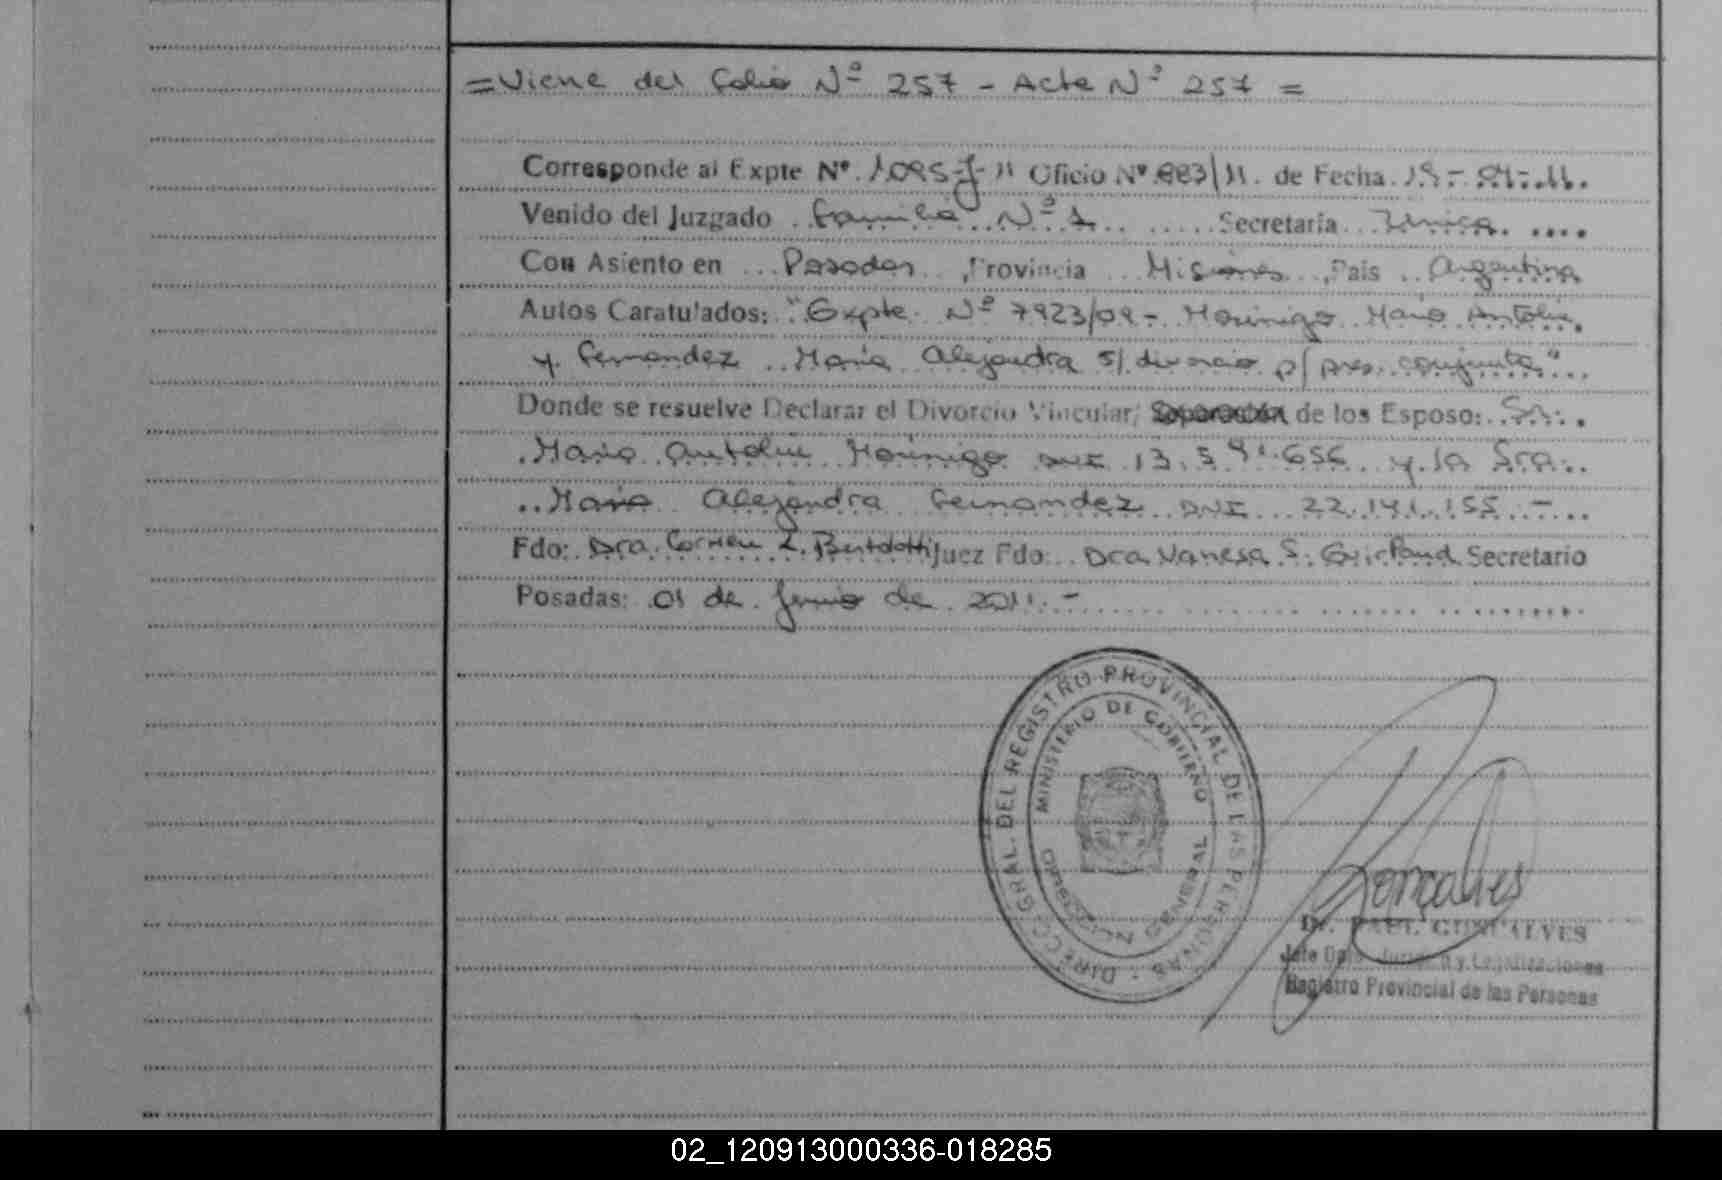 =Viene del Folio Nº 257 - Acta Nº 257 =
Corresponde al Expte Nº. 1095-J-11 Oficio Nº 883/11. de Fecha 19-04-11.
Venido del Juzgado Familia Nº 1 Secretaría Única
Con Asiento en Posadas, Provincia Misiones, País Argentina
Autos Caratulados: "Expte. Nº 7923/09- Morinigo Mario Antolin
y Fernandez Maria Alejandra s/ divorcio p/ pres. conjunta"
Donde se resuelve Declarar el Divorcio Vincular, de los Esposo: Sr.
Mario Antolin Morinigo DNI 13.591.656 y la Sra.
Maria Alejandra Fernandez DNI 22.141.155.-
Fdo: Dra. Carmen Z. Bertolotti Juez Fdo: Dra Vanesa S. Secretario
Posadas: 01 de Junio de 2011.-
DIRECC. GRAL. DEL REGISTRO PROVINCIAL DE LAS PERSONAS
MINISTERIO DE GOBIERNO
GENERAL
Gonçalves
Dr. RAUL GONCALVES
Jefe Dpto. y Legalizaciones
Registro Provincial de las Personas
02_120913000336-018285